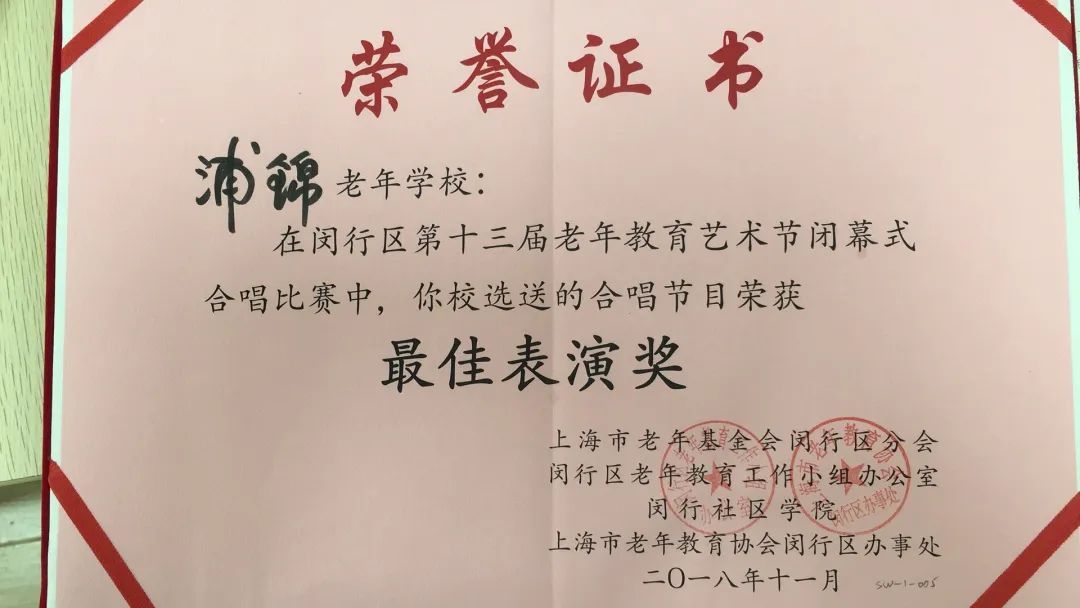 荣誉证书
浦錦老年学校：
在闵行区第十三届老年教育艺术节闭幕式
合唱比赛中，你校选送的合唱节目荣获
最佳表演奖
上海市老年基金会闵行区分会
闵行区老年教育工作小组办公室
闵行社区学院
上海市老年教育协会闵行区办事处
二〇一八年十一月
SW-1-005
上海市老年教育协会
闵行区办事处